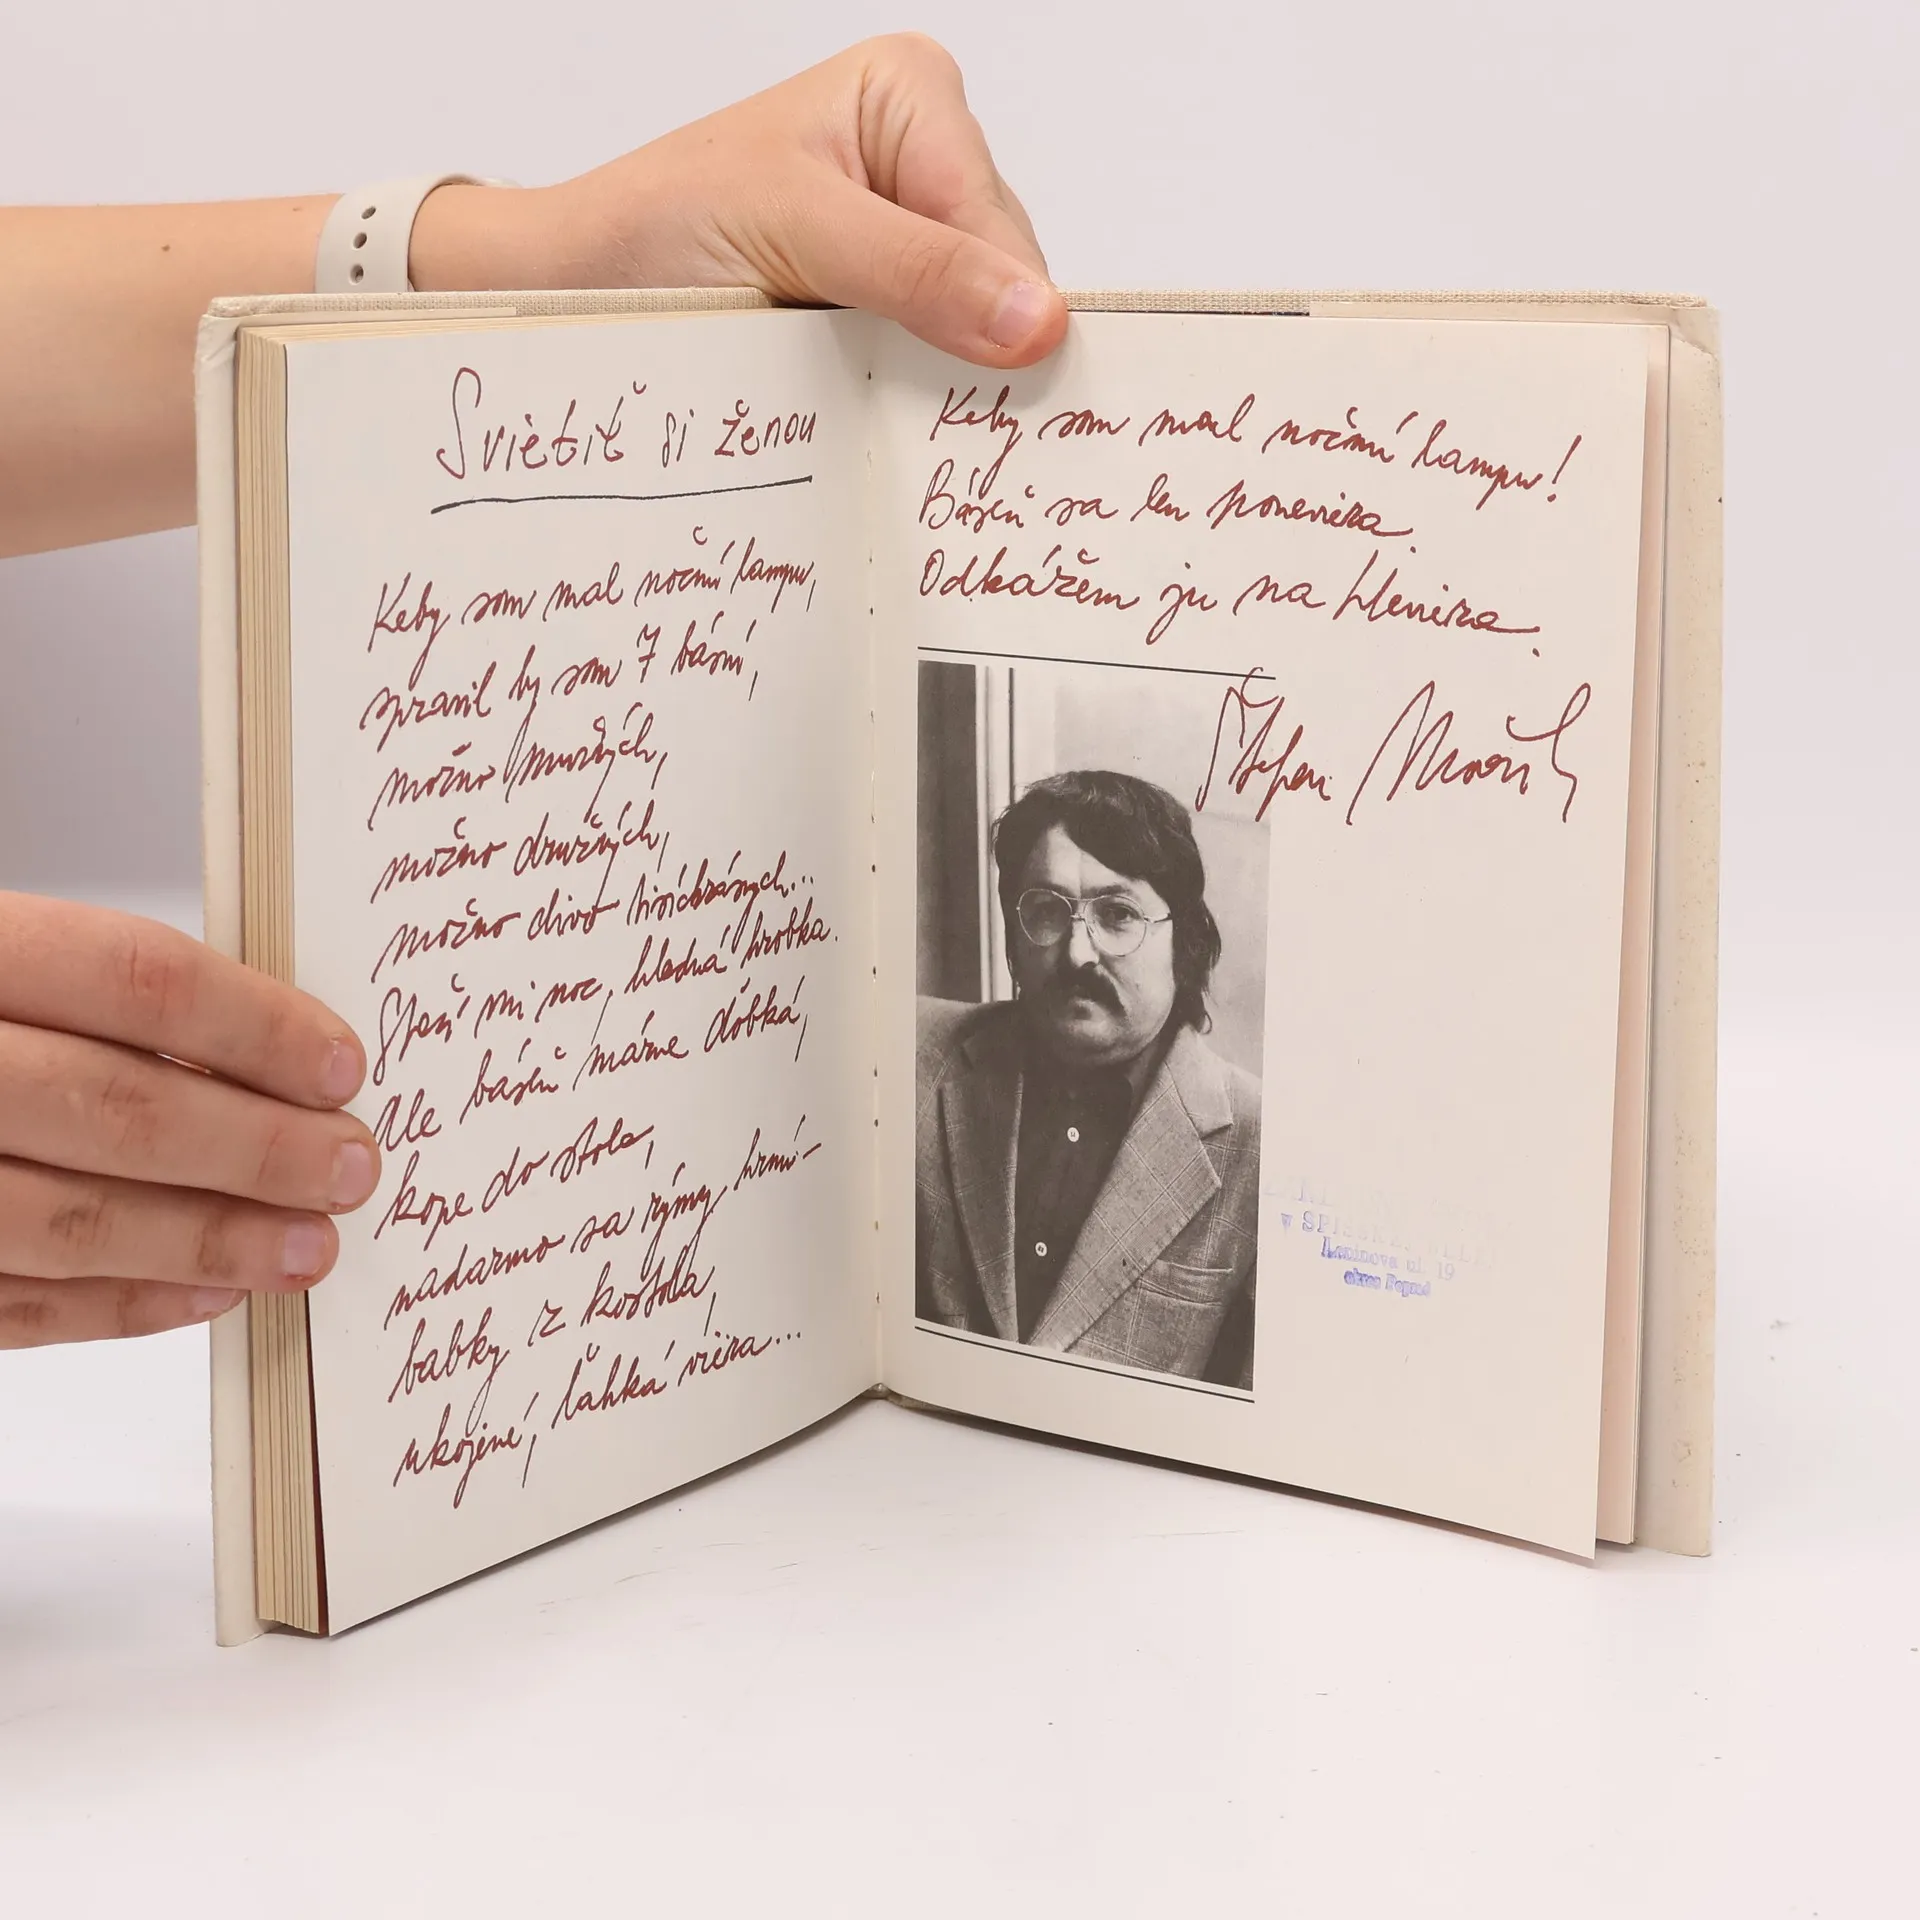 Svietiť si ženou
Keby som mal nočnú lampu,
spravil by som 7 básní,
možno mužných,
možno družných,
možno divo tisíckrásnych...
Stačí mi noc, hladná hrobka.
Ale báseň márne ďobká,
kope do stola,
nadarmo sa rýmy hrnú –
babky z kostola,
ukojené, ľahká viera...
Keby som mal nočnú lampu!
Báseň sa len poneviera.
Odkážem ju na Hlenira.
Štefan Moravčík
v SPIŠSKEJ BELEJ
Leninova ul. 19
okres Poprad